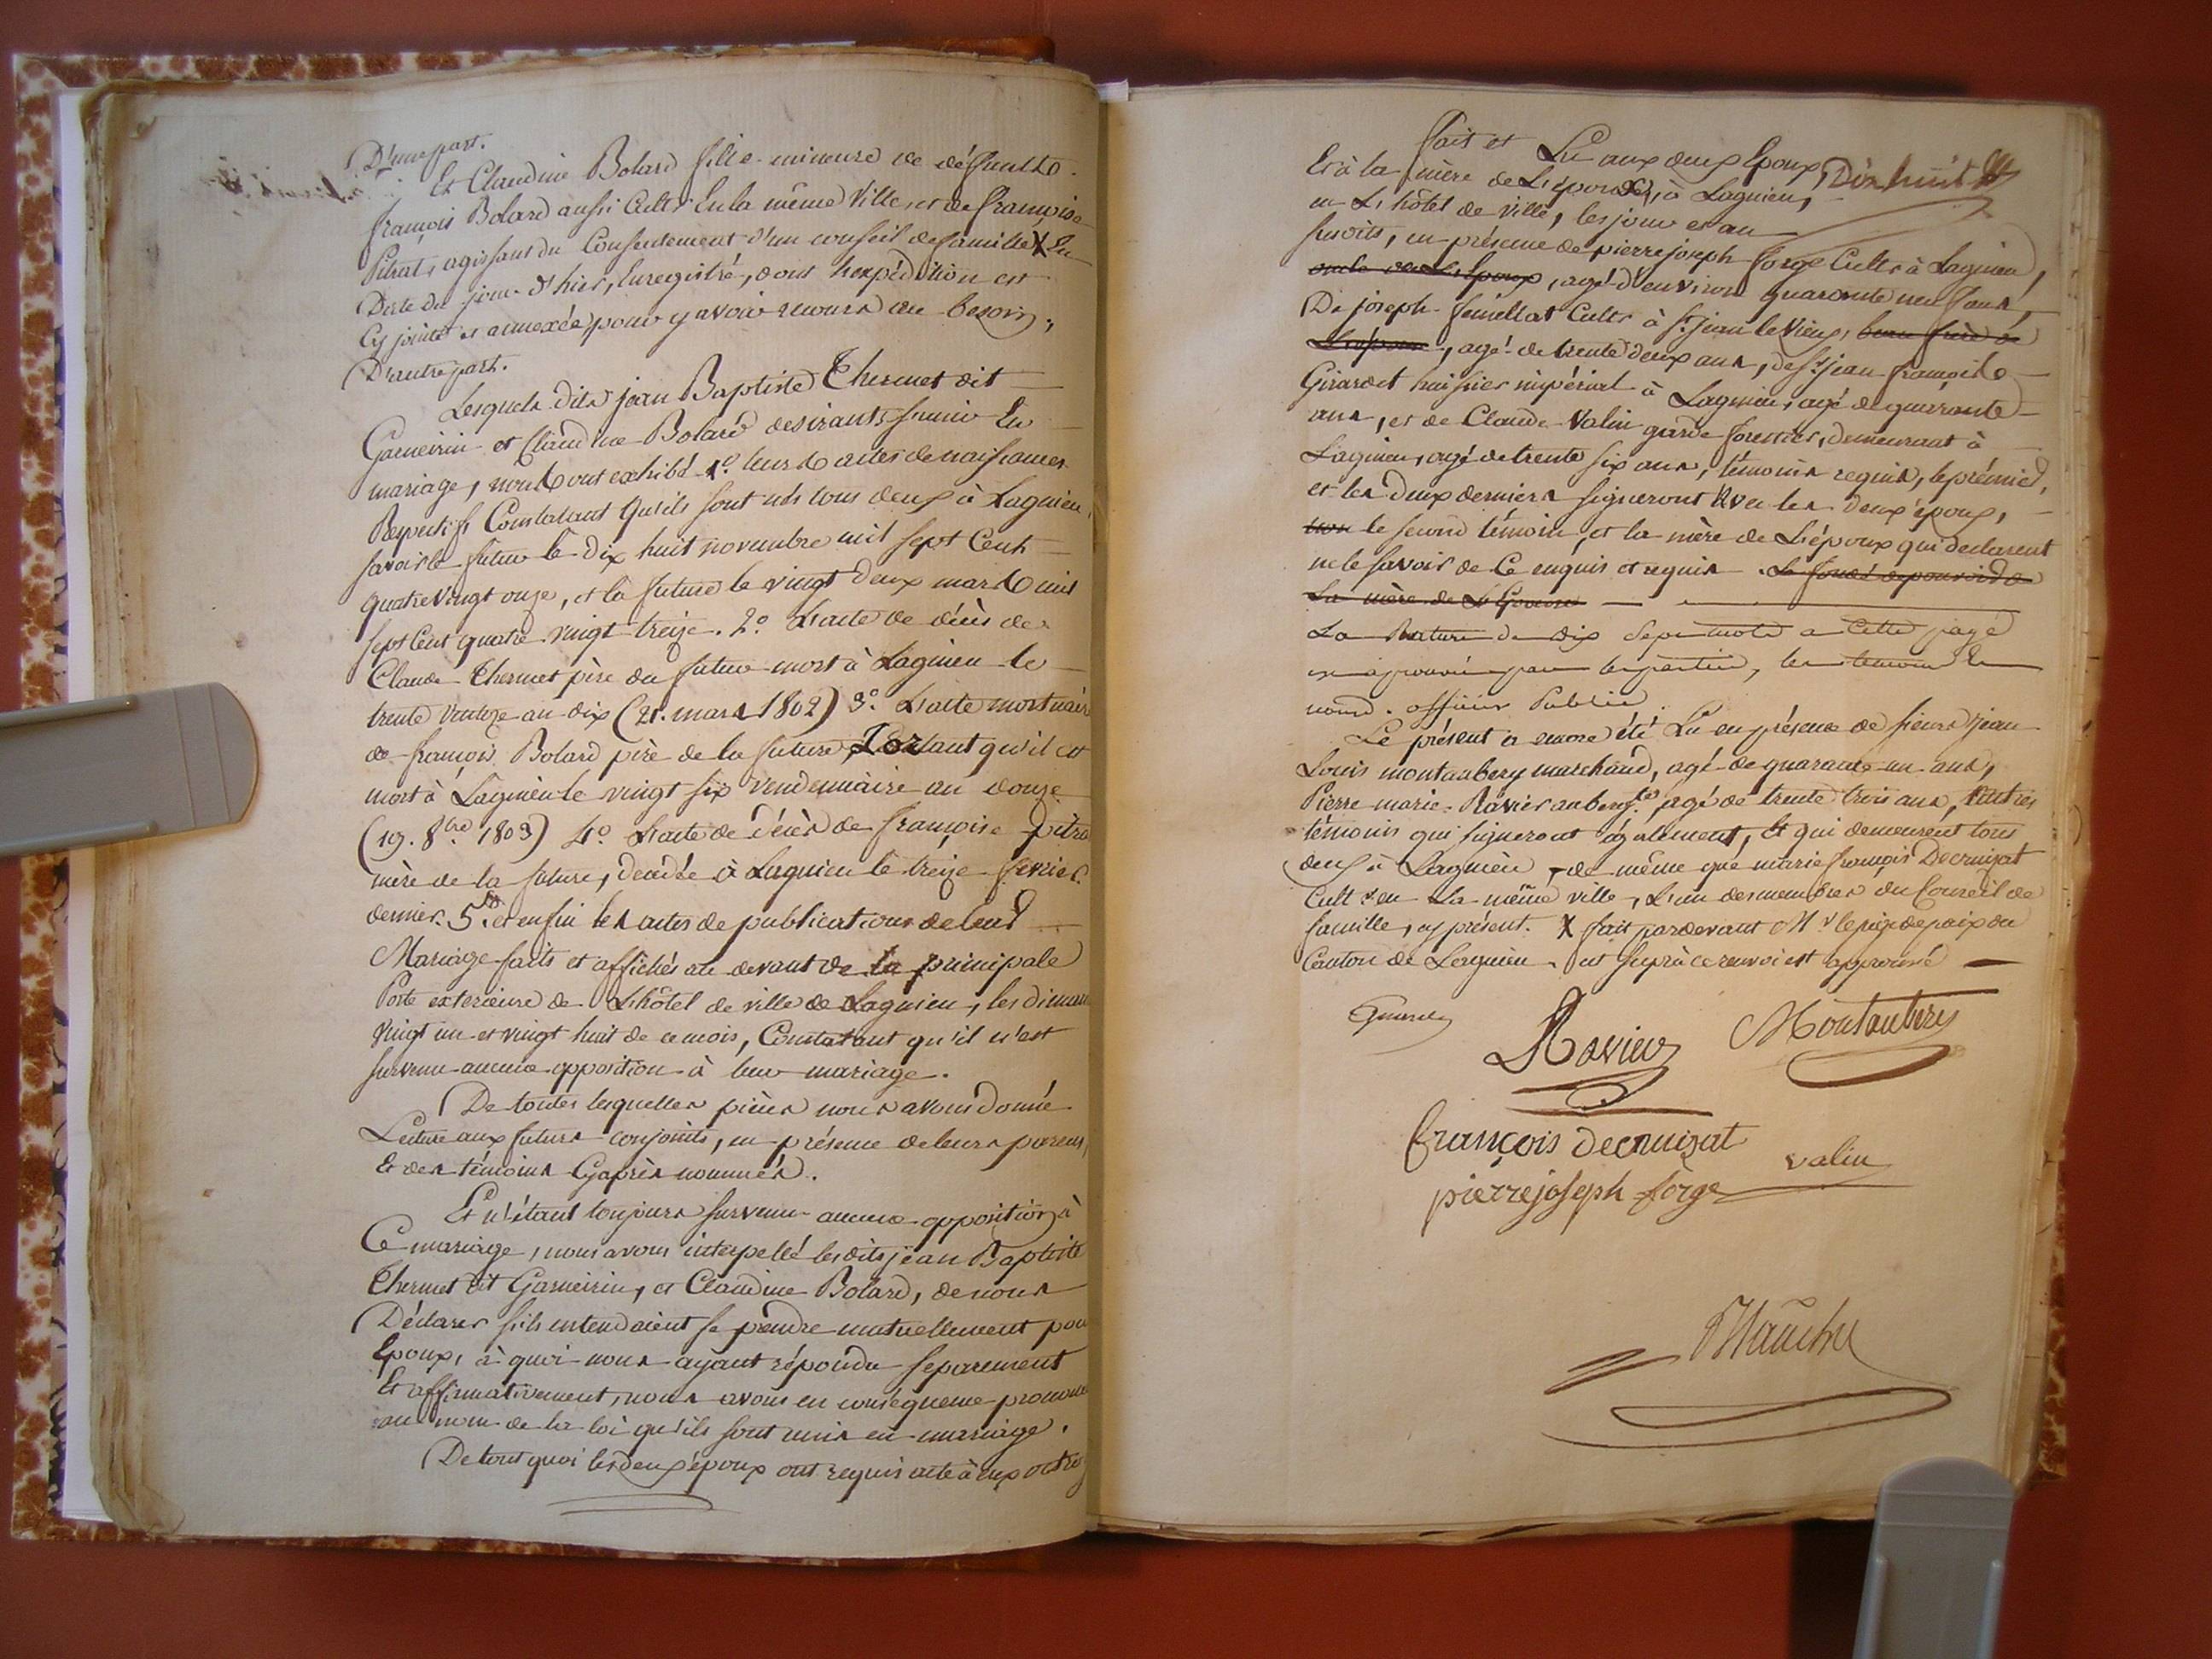 D'une part.
Et Claudine Bolard fille mineure de défunt
françois Bolard aussi Cultr En la même Ville, et de françoise
Pitrat, agissant du Consentement d'un conseil de famille X En
Date du jour d'hier, Enregistré, dont l'expédition est
Cy jointe et annexée, pour y avoir recours au besoin,
D'autre part.
Lesquels dits jean Baptiste Thermet dit
Garneirin et Claudine Bolard desirants s'unir En
mariage, nous ont exhibé 1º. leurs actes de naissances
Respectifs Constatant qu'ils sont nés tous deux à Lagnieu,
savoir le futur le dix huit novembre mil sept Cent
quatre vingt onze, et la future le vingt deux mars mil
sept Cent quatre vingt treize. 2º L'acte de décès de
Claude Thermet père du futur mort à Lagnieu le
trente Ventoze an dix (21. mars 1802) 3º. L'acte mortuaire
de françois Bolard père de la future, Portant qu'il est
mort à Lagnieu le vingt six Vendemiaire an douze
(19. 8bre 1803) 4º. L'acte de décès de françoise Pitra
mère de la future, décédée à Lagnieu le treize fevrier
dernier. 5º. et enfin les actes de publications de leur
Mariage faits et affichés au devant de la principale
Porte exterieure de L'hôtel de ville de Lagnieu, les diman
vingt un et vingt huit de ce mois, Constatant qu'il n'est
survenu aucune opposition à leur mariage.
De toutes lesquelles pièces nous avons donné
Lecture aux futurs conjoints, en présence de leurs parens,
Et des témoins Cy après nommés.
Et n'étant toujours survenu aucune opposition à
Ce mariage, nous avons interpellé lesdits jean Baptiste
Thermet dit Garneirin, et Claudine Bolard, de nous
Déclarer s'ils entendaient se prendre mutuellement pou
Epoux, à quoi nous ayant répondu separement
Et affirmativement, nous avons en conséquence prononcé
au nom de la loi qu'ils sont unis en mariage.
De tout quoi les deux époux ont requis acte à eux octroy
fait et Lu aux deux Epoux
Et à la mère de L'époux, à Lagnieu, Dix huit
en L'hôtel de ville, les jour et an
susdits, en présence de pierre joseph forge Cultr à Lagnieu,
oncle de L'Epoux, agé d'environ quarante neuf ans,
De joseph femellat Cultr à St jean le Vieux, beau frère de
L'époux, agé de trente deux ans, de Sr jean françois
Girardet huissier impérial à Lagnieu, agé de quarante
ans, et de Claude Valin garde forestier, demeurant à
Lagnieu, agé de trente six ans, témoins requis, le prémier,
et les deux derniers signeront avec les deux époux,
non le second témoin, et la mère de L'époux qui declarent
ne le savoir de Ce enquis et requis. Le fondé de pouvoir de
La mère de L'Epouse
La Rature de dix Sept mots a Cette page
est aprouvée par les parties, les temoins Et
nous. officier Public
Le présent a encore été Lu en présence de sieurs jean
Louis montaubery marchand, agé de quarante un ans,
Pierre marie Ravier auberg.te agé de trente trois ans, autres
témoins qui signeront également, Et qui demeurent tous
deux à Lagnieu, de même que marie françois Decruizat
Cultr en La même ville, L'un des membres du Conseil de
famille, cy présent. X fait pardevant Mr. le juge de paix du
Canton de Lagnieu. cet suprà ce renvoi est approuvé
Ravier
Montaubery
françois decruizat
valin
pierre joseph forge